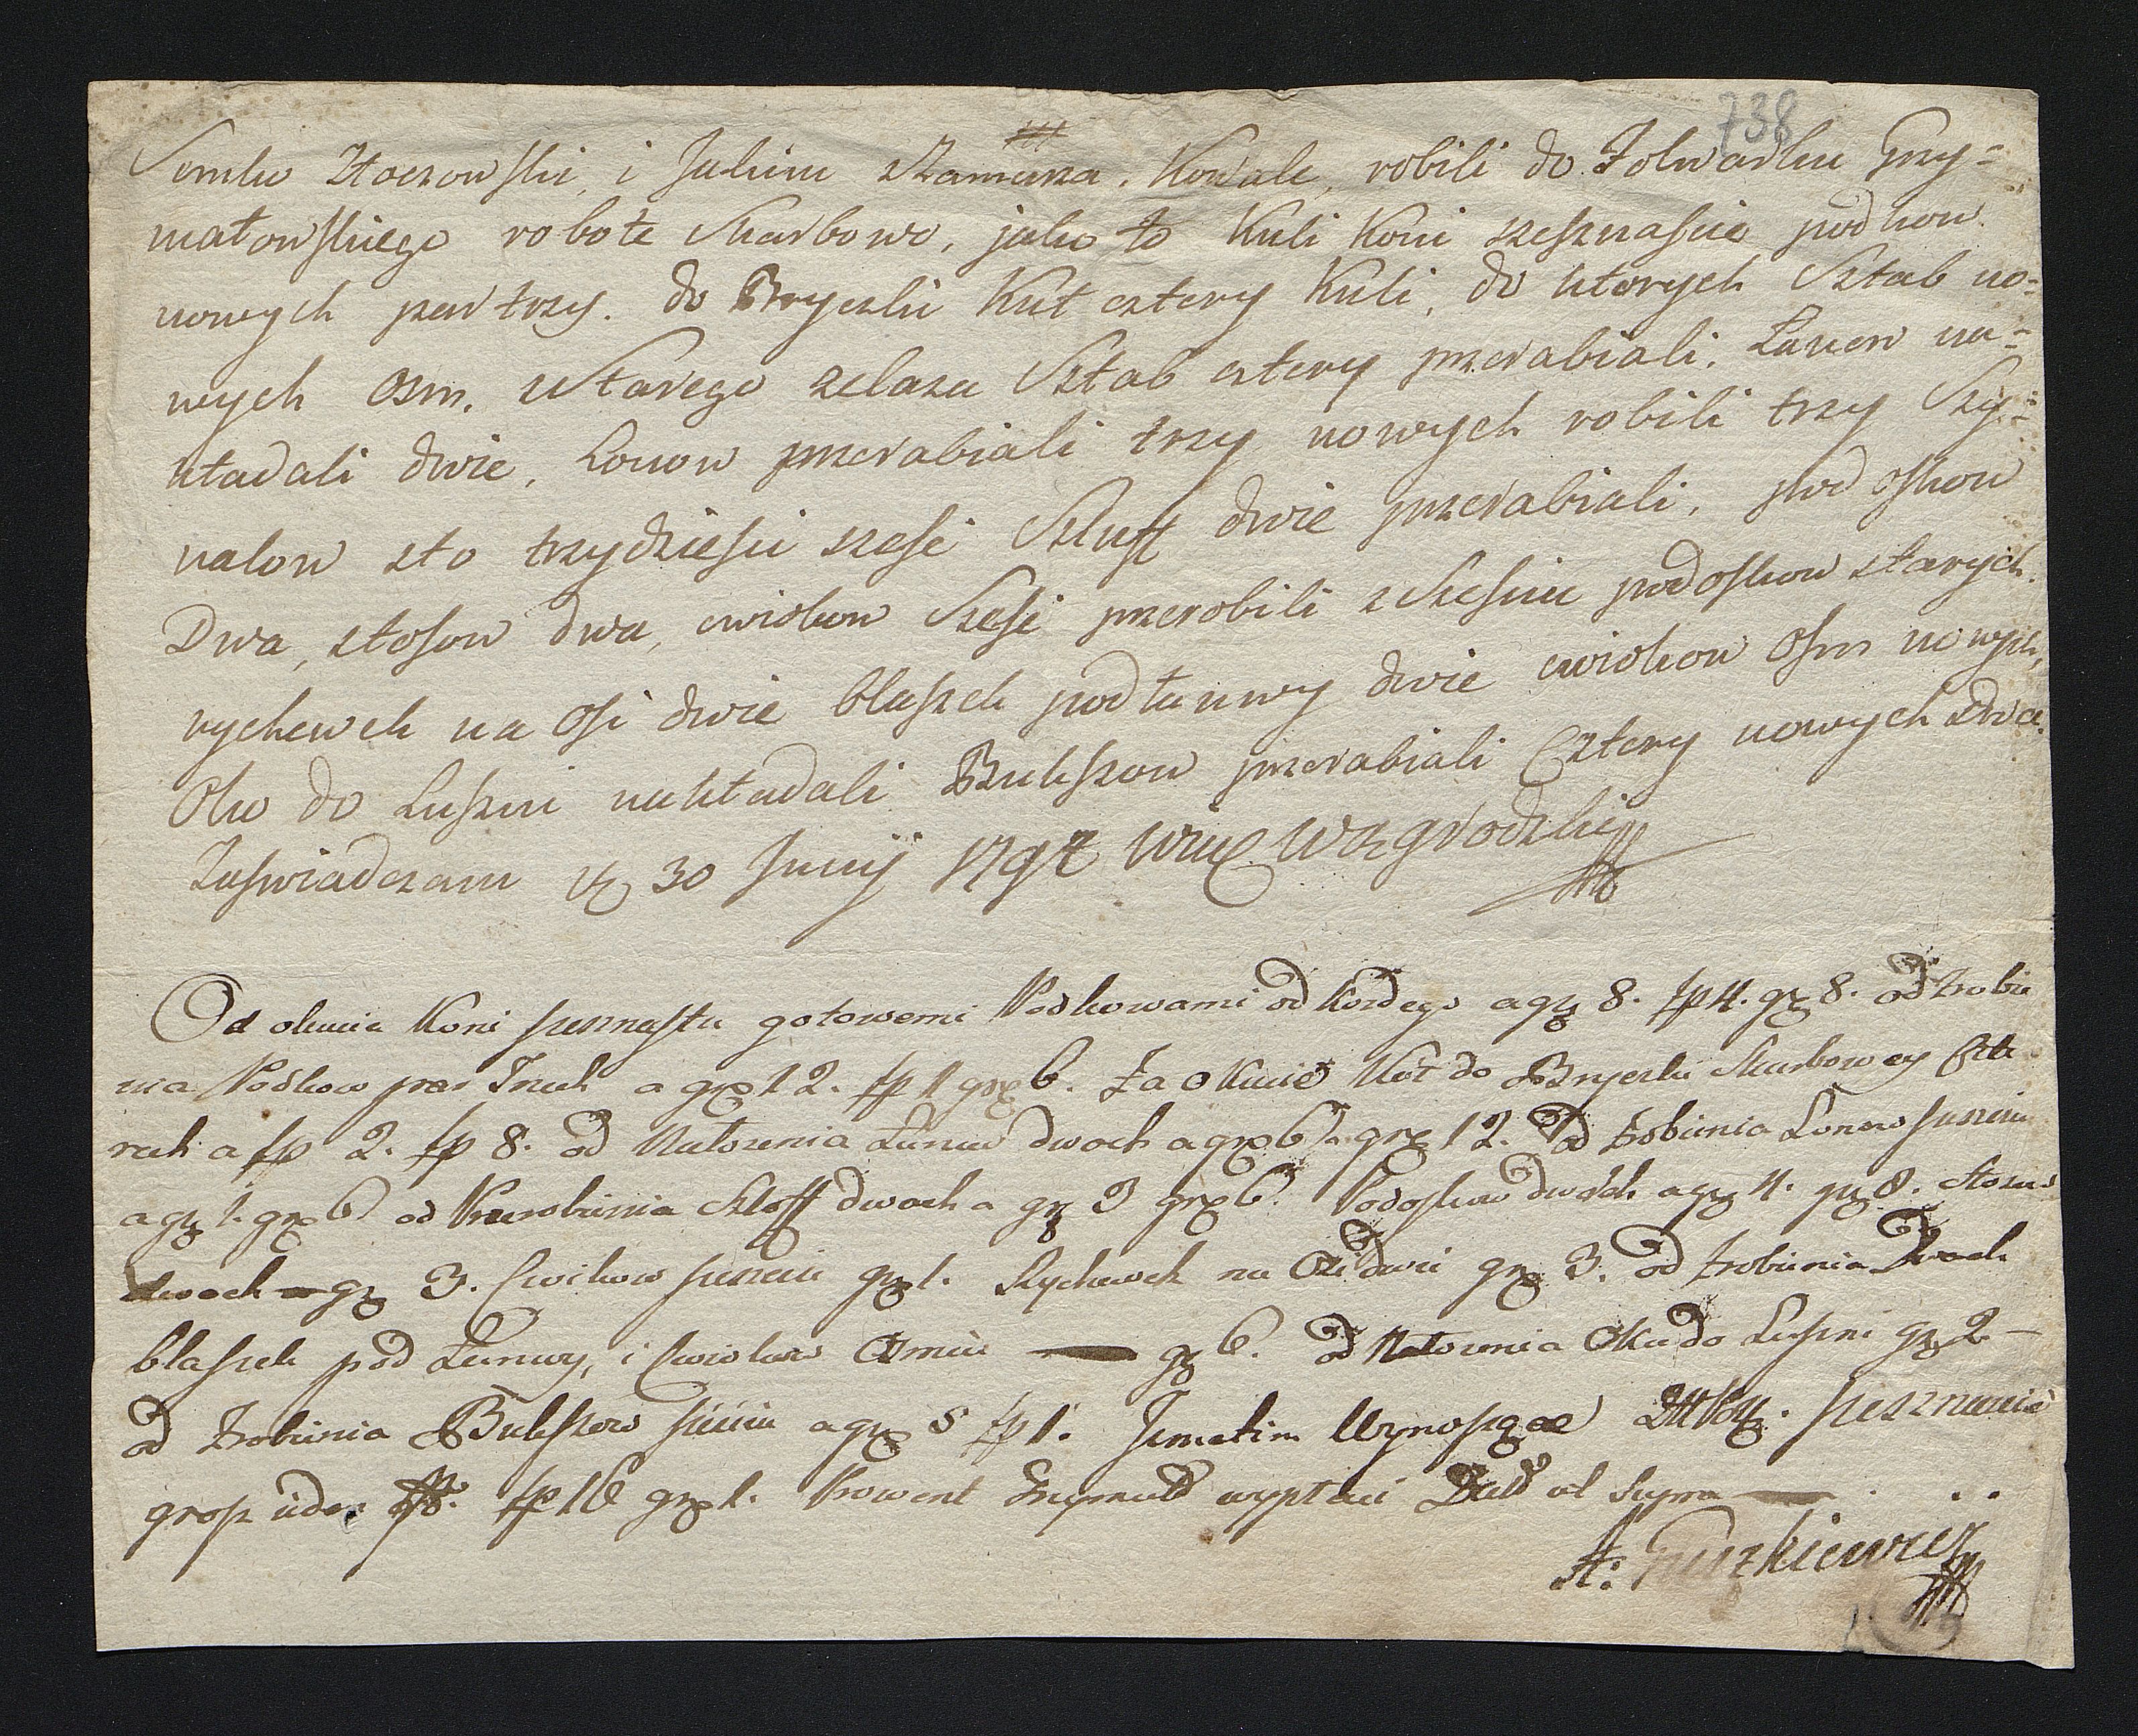 738
Semko Zloczowski, i Jakim Kowale, robili do Folwarku Grzy=
małowskiego robote Skarbowo, jako to Kuli Koni szesznascie podkow.
nowych par trzy. do Bryczki Kuł cztery Kuli, do ktorych Sztab no=
wych osm. z Starego zelaza Sztab cztery przerabiali. Lanew na=
kładali dwie, Lonow przerabiali trzy nowych robili trzy Szy=
nalow sto trzydziesci szesc Szluff dwie przerabiali, podoskow
Dwa, stosow dwa, cwiekow Szesc przerobili z Szesciu podoskow starych.
rychewek na osi dwie blaszek pod łunwy dwie cwiekow Osm nowych,
Oko do Luszni nakładali Bukszow przerabiali Cztery nowych dwa.
Zaswiadczam 30 Junij Wagrodzki
Od okucia Koni szesznastu gotowemi Podkowami od Kozdego a gr 8. fp 4. gr 8. od zrobie
nia Podkow par Trzech a gr 12. fp 1 gr 6. Za okucie Kół do Bryczki Skarbowey
rech a fp 2. fp 8. od Nałozenia Lanew dwoch a gr 6 gr 12. Od zrobienia Lonow szesciu
a gr 1. gr 6 od Przerobienia Szloff dwoch a gr 3 gr 6. Podoskow dwoch a gr 4. gr 8. Stosow
dwoch a gr 3. Cwikow szesciu gr 1. Rychewek na Osi dwie gr 3. od zrobienia Dwoch
blaszek pod Lunwy, i Cwiekow Osmiu gr 6. od Nałozenia Oka do Luszni gr 2 –
od Zrobienia Bukszow szesciu a gr 5 fp 1. szesznascie
grosz ieden fp 16 gr 1. Prowent Grzymał wypłaci